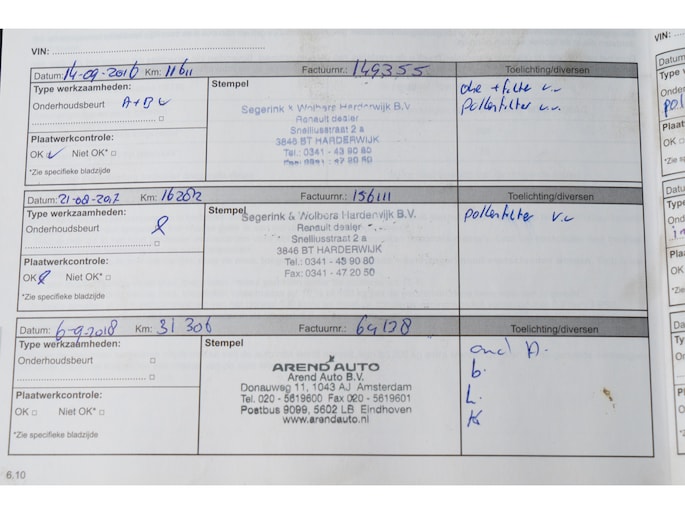 VIN:
Datum: 14-09-2016 Km: 11611 Factuurnr.: 149355 Toelichting/diversen
Type werkzaamheden:
Stempel
Onderhoudsbeurt A+B
Segerink & Wolbers Harderwijk B.V.
Renault dealer
Snelliusstraat 2 a
3846 BT HARDERWIJK
Tel.: 0341 - 43 90 80
Plaatwerkcontrole:
OK Niet OK*
*Zie specifieke bladzijde
olie + filter v.v.
pollenfilter v.v.
Datum: 21-08-2017 Km: Factuurnr.: 156111 Toelichting/diversen
Type werkzaamheden:
Stempel
Onderhoudsbeurt
Segerink & Wolbers Harderwijk B.V.
Renault dealer
Snelliusstraat 2 a
3846 BT HARDERWIJK
Tel.: 0341 - 43 90 80
Fax: 0341 - 47 20 50
Plaatwerkcontrole:
OK Niet OK*
*Zie specifieke bladzijde
pollenfilter v.v
Datum: 6-9-2018 Km: 31 306 Factuurnr.: Toelichting/diversen
Type werkzaamheden:
Stempel
Onderhoudsbeurt
AREND AUTO
Arend Auto B.V.
Donauweg 11, 1043 AJ Amsterdam
Tel. 020 - 5619600 Fax 020 - 5619601
Postbus 9099, 5602 LB Eindhoven
www.arendauto.nl
Plaatwerkcontrole:
OK Niet OK*
*Zie specifieke bladzijde
ond A.
b.
L.
K
6.10
VIN:
Datum
Type